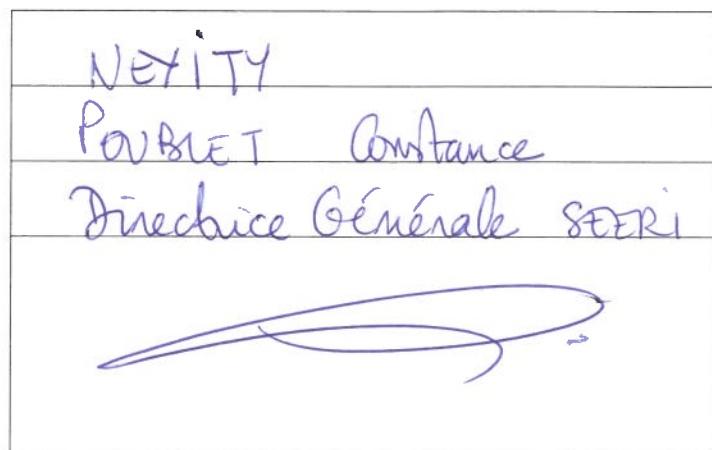 NEXITY
POUBLET Constance
Directrice Générale SEERI